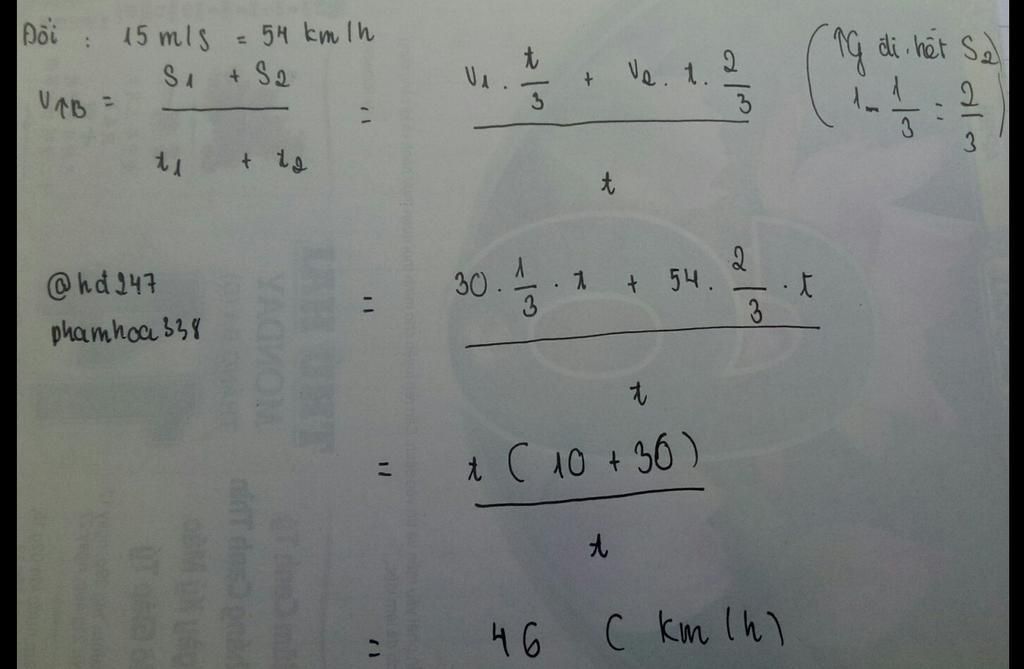 Đổi : 15 m/s = 54 km/h
vTB = (S1 + S2) / (t1 + t2) = (v1 . t/3 + v2 . t . 2/3) / t (TG đi hết S2 1 - 1/3 = 2/3)
@hd247
phamhoa338
= (30 . 1/3 . t + 54 . 2/3 . t) / t
= t ( 10 + 36 ) / t
= 46 ( km/h)